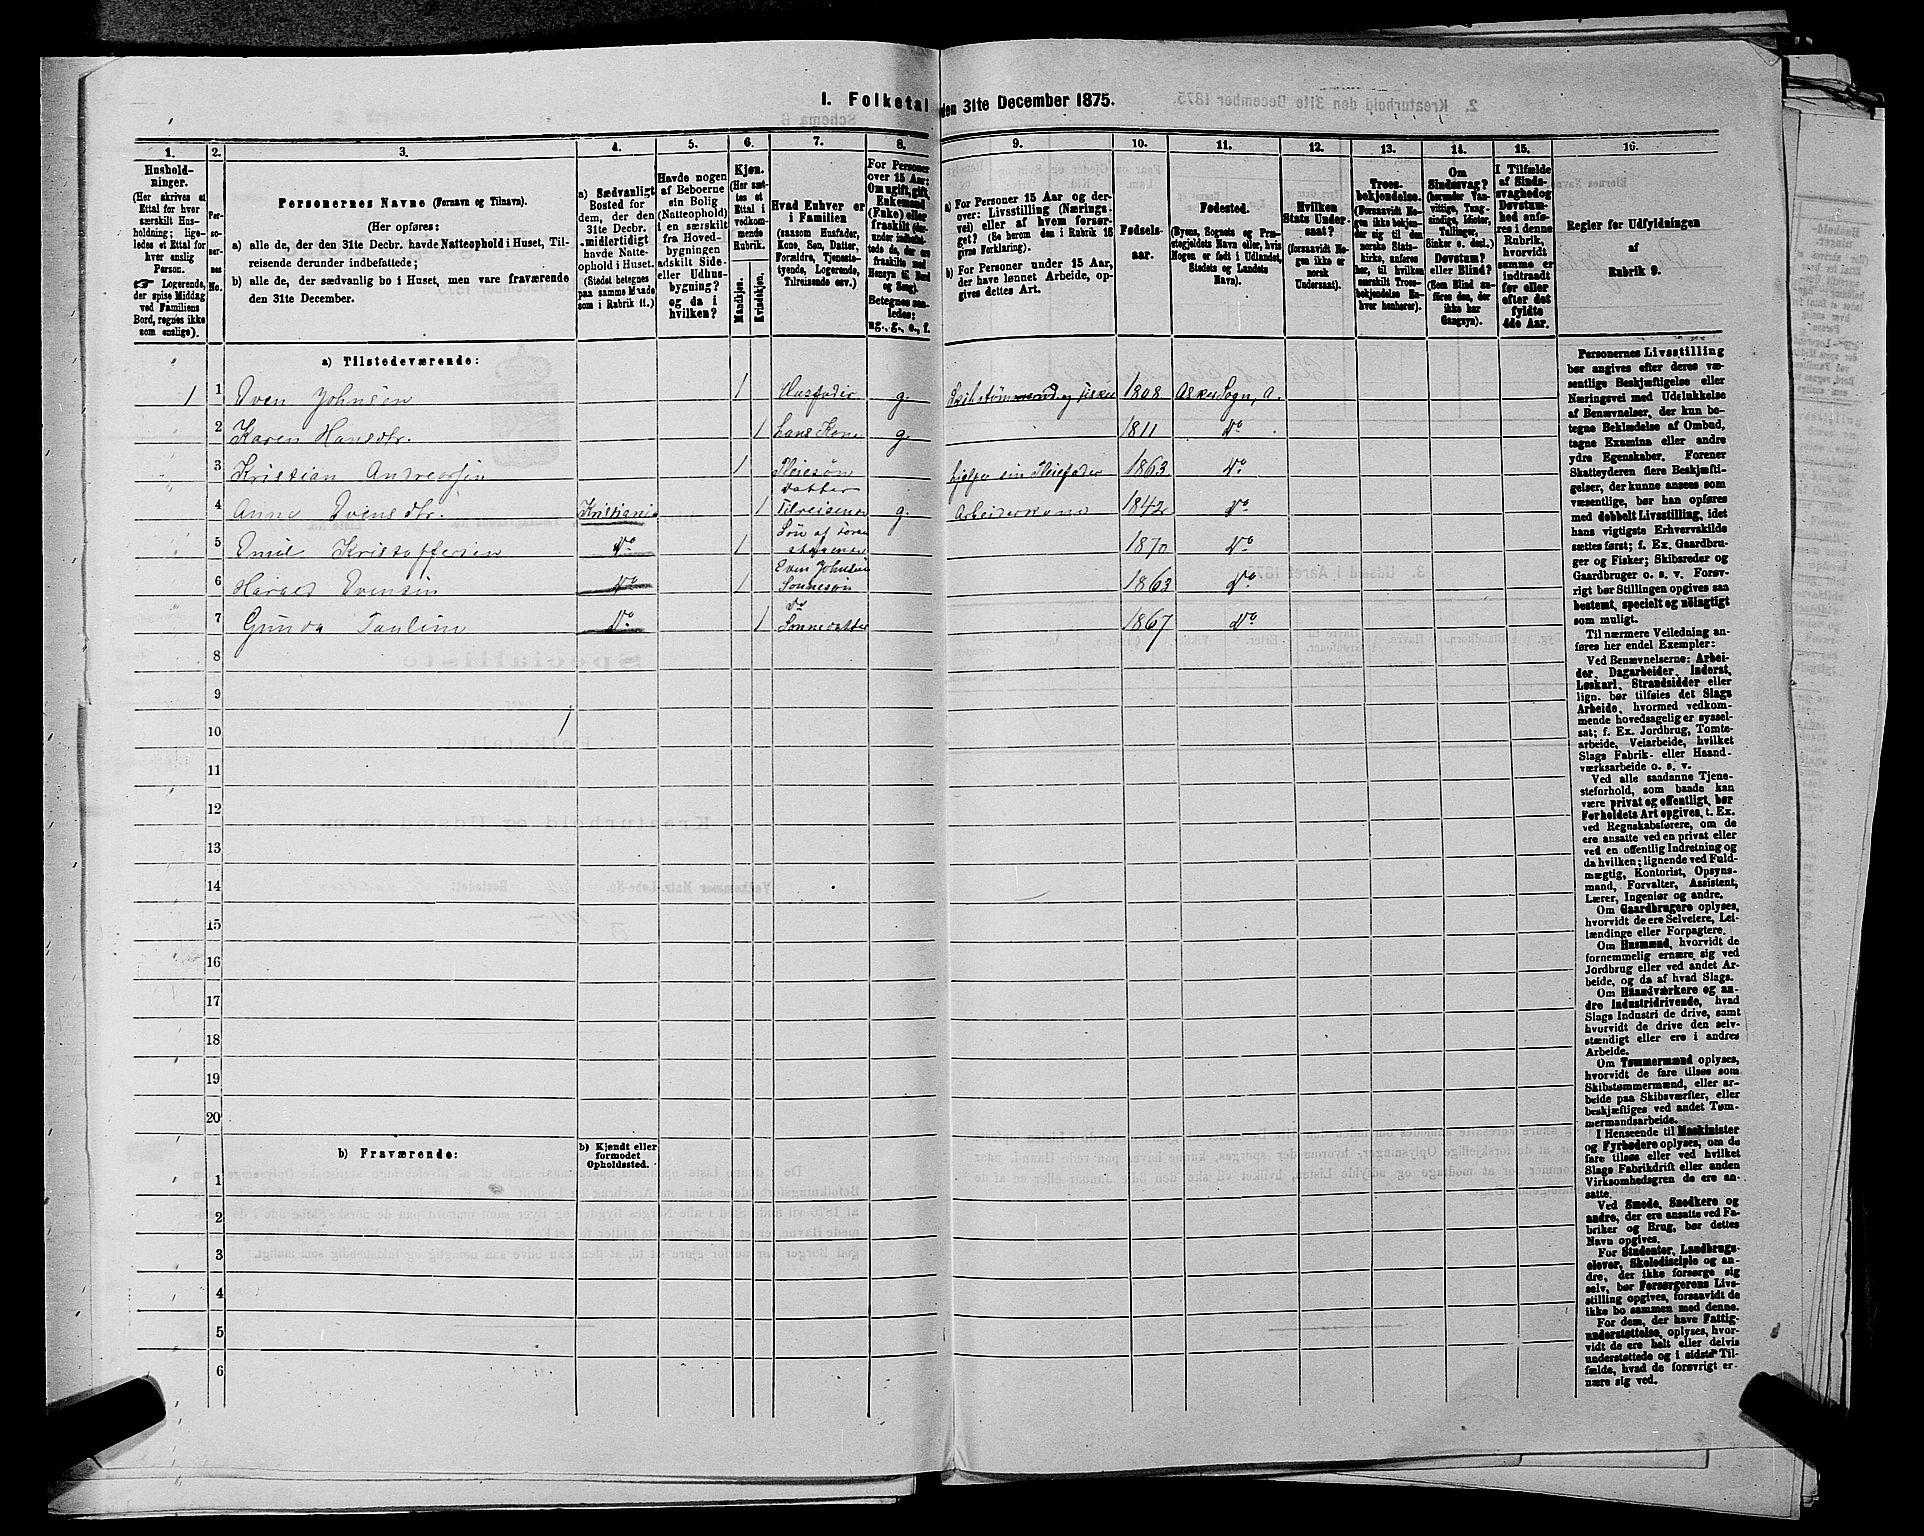 I. Folketal den 31te December 1875.
1. 2. 3. 4. 5. 6. 7. 8. 9. 10. 11. 12. 13. 14. 15. 16.
Hushold-
ninger.
(Her skrives et
Ettal for hver
særskilt Hus-
holdning; lige-
ledes et Ettal for
hver enslig
Person.
Logerende,
der spise Middag
ved Familiens
Bord, regnes ikke
som enslige).
Per-
so-
ner-
nes
No.
Personernes Navne (Fornavn og Tilnavn).
(Her opføres:
a) alle de, der den 31te Decbr. havde Natteophold i Huset, Til-
reisende derunder indbefattede;
b) alle de, der sædvanlig bo i Huset, men vare fraværende
den 31te December.
a) Sædvanligt
Bosted for
dem, der den
31te Decbr.
midlertidigt
havde Natte-
ophold i Huset.
(Stedet betegnes
paa samme Maade
som i Rubrik 11.)
Havde nogen
af Beboerne
sin Bolig
(Natteophold)
i en særskilt
fra Hoved-
bygningen
adskilt Side-
eller Udhus-
bygning?
og da i
hvilken?
Kjøn.
(Her sæt-
tes et
Ettal i
vedkom-
mende
Rubrik.
Mandkjøn.
Kvindekjøn.
Hvad Enhver er
i Familien
(saasom Husfader,
Kone, Søn, Datter,
Forældre, Tjeneste-
tyende, Logerende,
Tilreisende osv.)
For Personer
over 15 Aar:
Om ugift, gift,
Enkemand
(Enke) eller
fraskilt
Betegnes saa-
ledes:
ug., g., e., f.
a) For Personer 15 Aar og der-
over: Livsstilling (Nærings-
vei) eller af hvem forsør-
get? (Se herom den i Rubrik 16
givne Forklaring).
b) For Personer under 15 Aar,
der have lønnet Arbeide, op-
gives dettes Art.
Fødsels-
aar.
Fødested.
(Byens, Sognets og Præ-
stegjeldets Navn eller, hvis
Nogen er født i Udlandet,
Stedets og Landets
Navn).
Hvilken
Stats Under-
saat?
(forsaavidt No-
gen ikke er
norsk
Undersaat).
Troes-
bekjendelse.
(Forsaavidt No-
gen ikke bekjen-
der sig til den
norske Stats-
kirke, anføres
her, til hvilken
særskilt Troes-
bekjendelse En-
hver henhører).
Om
Sindssvag?
(herunder Van-
vittige, Tung-
sindige, Idioter,
Tullinger,
Sinker o. desl.)
Døvstum?
eller Blind?
(Som Blind an-
føres den, der
ikke har
Gangsyn).
I Tilfælde
af Sinds-
svaghed og
Døvstum-
hed anfø-
res i denne
Rubrik,
hvorvidt
samme er
indtraadt
før eller
efter det
fyldte
4de Aar.
Regler for Udfyldningen
af
Rubrik 9.
a) Tilstedeværende:
1 1 Even Johnsen 1 Husfader g. Skibstømmermand og Fisker 1808 Asker Sogn, A.
2 Karen Hansdtr. 1 hans Kone g. 1811 Do
3 Kristian Andreassen 1 Pleiesøn hjelper sin Pleiefader 1863 Do
4 Anne Evensdtr. Kristiania 1 Datter Tilreisende g. Arbeiderkone 1842 Do
5 Emil Kristoffersen Do 1 Søn af foran 1870 Do
6 Harald Evensen Do 1 Even Johnsens Sønnesøn 1863 Do
7 Gunda Pauline Do 1 Do Sønnedatter 1867 Do
8
9
10
11
12
13
14
15
16
17
18
19
20
b) Fraværende:
b) Kjendt eller
formodet
Opholdssted.
1
2
3
4
5
6
Personernes Livsstilling
bør angives efter deres væ-
sentlige Beskjæftigelse eller
Næringsvei med Udelukkelse
af Benævnelser, der kun be-
tegne Beklædelse af Ombud,
tagne Examina eller andre
ydre Egenskaber. Forener
Skatteyderen flere Beskjæfti-
gelser, der kunne ansees som
væsentlige, bør han opføres
med dobbelt Livsstilling, idet
hans vigtigste Erhvervskilde
sættes først; f. Ex. Gaardbru-
ger og Fisker; Skibsreder og
Gaardbruger o. s. v. Forøv-
rigt bør Stillingen opgives saa
bestemt, specielt og nøiagtigt
som muligt.
Til nærmere Veiledning an-
føres her endel Exempler:
Ved Benævnelserne: Arbei-
der, Dagarbeider, Inderst,
Løskarl, Strandsidder eller
lign. bør tilføies det Slags
Arbeide, hvormed vedkom-
mende hovedsagelig er syssel-
sat; f. Ex. Jordbrug, Tomte-
arbeide, Veiarbeide, hvilket
Slags Fabrik- eller Haand-
værksarbeide o. s. v.
Ved alle saadanne Tjene-
steforhold, som baade kan
være privat og offentligt, bør
Forholdets Art opgives, t. Ex.
ved Regnskabsførere, om de
ere ansatte ved en privat eller
ved en offentlig Indretning og
da hvilken; lignende ved Fuld-
mægtig, Kontorist, Opsyns-
mand, Forvalter, Assistent,
Lærer, Ingeniør og andre.
Om Gaardbrugere oplyses,
hvorvidt de ere Selveiere, Lei-
lændinge eller Forpagtere.
Om Husmænd, hvorvidt de
fornemmelig ernære sig ved
Jordbrug eller ved andet Ar-
beide, og da af hvad Slags.
Om Haandværkere og an-
dre Industridrivende, hvad
Slags Industri de drive, samt
hvorvidt de drive den selv-
stændigt eller ere i andres
Arbeide.
Om Tømmermænd oplyses,
hvorvidt de fare tilsøs som
Skibstømmermænd, eller ar-
beide paa Skibsværfter, eller
beskjæftiges ved andet Tøm-
mermandsarbeide.
I Henseende til Maskinister
og Fyrbødere oplyses, om de
fare tilsøs eller ved hvilket
Slags Fabrikdrift eller anden
Virksomhedsgren de ere an-
satte.
Ved Smede, Snedkere og
andre, der ere ansatte ved Fa-
briker og Brug, bør dettes
Navn opgives.
For Studenter, Landbrugs-
elever, Skoledisciple og an-
dre, der ikke forsørge sig
selv, bør Forsørgerens Livs-
stilling opgives, forsaavidt de
ikke bo sammen med denne.
For dem, der have Fattig-
understøttelse, oplyses, hvor-
vidt de ere helt eller delvis
understøttede og i sidste Til-
fælde, hvad de forøvrigt er-
nære sig ved.